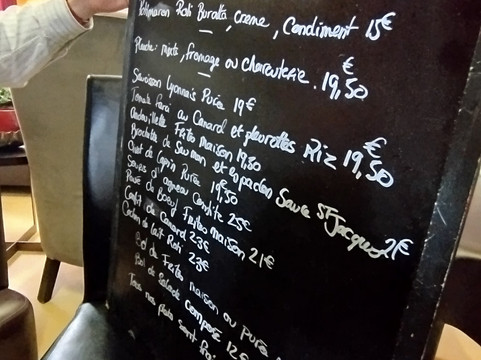 Potimarron Roti Buratta, creme, Condiment 15€
Planche mixte, fromage ou charcuterie. 19,50€
Saucisson Lyonnais Purée 19€
Tomate Farci au Canard et pleurottes Riz 19,50€
Andouillette Frites maison 19,50
Brochette de Saumon et espadon Sauce St Jacques 21€
Civet de Lapin Purée 19,50€
Souris d'agneau Confite 25€
Pavé de boeuf Frites maison 21€
Confit de Canard 23€
Cochon de Lait Roti 23€
Bol de Frites maison ou Purée
Bol de Salade Composé 12€
Tous nos plats sont